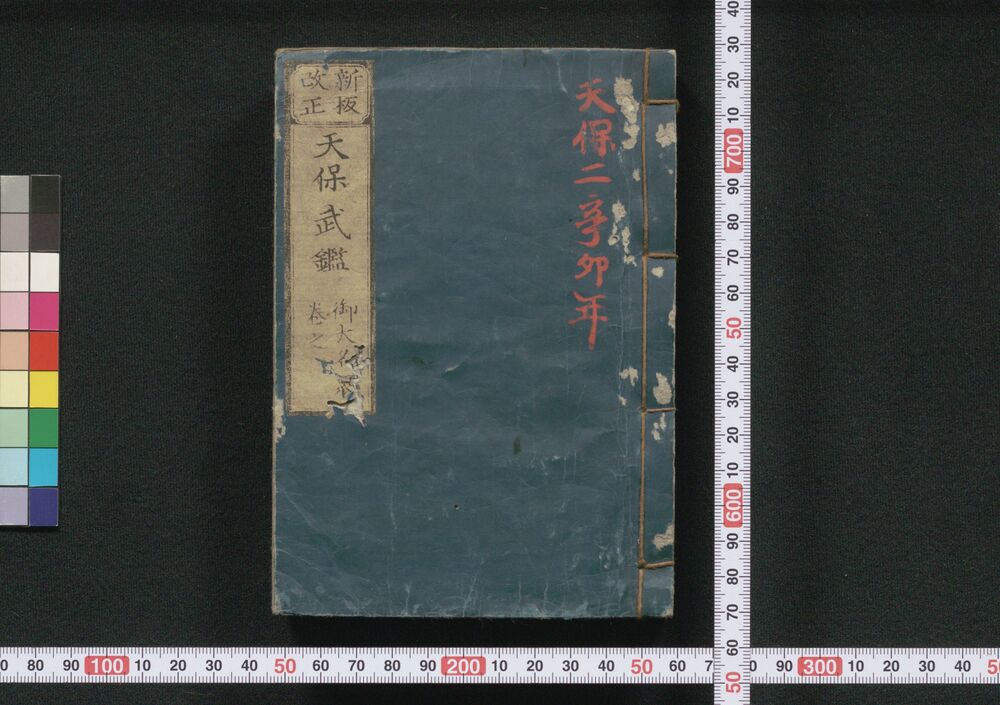 天保二辛卯年
新板
改正
天保武鑑
御大
卷之
0 80 90 100 10 20 30 40 50 60 70 80 90 200 10 20 30 40 50 60 7 0 90 300 10 20 30 40 5
40 30 20 10 700 90 80 70 60 50 40 30 20 10 600 90 80 70 60 50